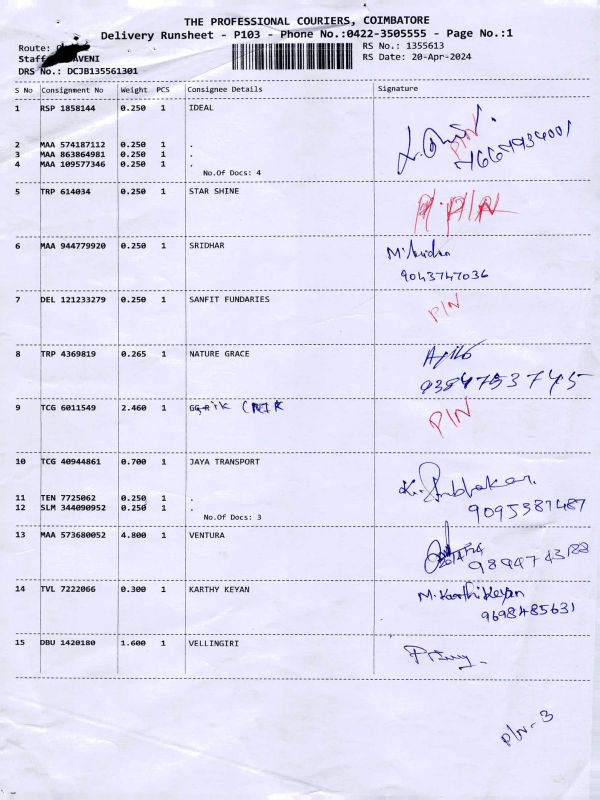 THE PROFESSIONAL COURIERS, COIMBATORE
Delivery Runsheet - P103 - Phone No.:0422-3505555 - Page No.:1
Route:
RS No.: 1355613
Staff AVENI
RS Date: 20-Apr-2024
DRS No.: DCJB135561301
S No Consignment No Weight PCS Consignee Details Signature
1 RSP 1858144 0.250 1 IDEAL
2 MAA 574187112 0.250 1 .
3 MAA 863864981 0.250 1 .
4 MAA 109577346 0.250 1 .
No.Of Docs: 4
PIN
5 TRP 614034 0.250 1 STAR SHINE
PIN
6 MAA 944779920 0.250 1 SRIDHAR
9043747036
7 DEL 121233279 0.250 1 SANFIT FUNDARIES
PIN
8 TRP 4369819 0.265 1 NATURE GRACE
9384753745
9 TCG 6011549 2.460 1
PIN
10 TCG 40944861 0.700 1 JAYA TRANSPORT
K. Prabhakar
11 TEN 7725062 0.250 1 .
9095387487
12 SLM 344090952 0.250 1 .
No.Of Docs: 3
13 MAA 573680052 4.800 1 VENTURA
20/4/24
9894743188
14 TVL 7222066 0.300 1 KARTHY KEYAN
M. Karthikeyan
9698485631
15 DBU 1420180 1.600 1 VELLINGIRI
PIN - 3